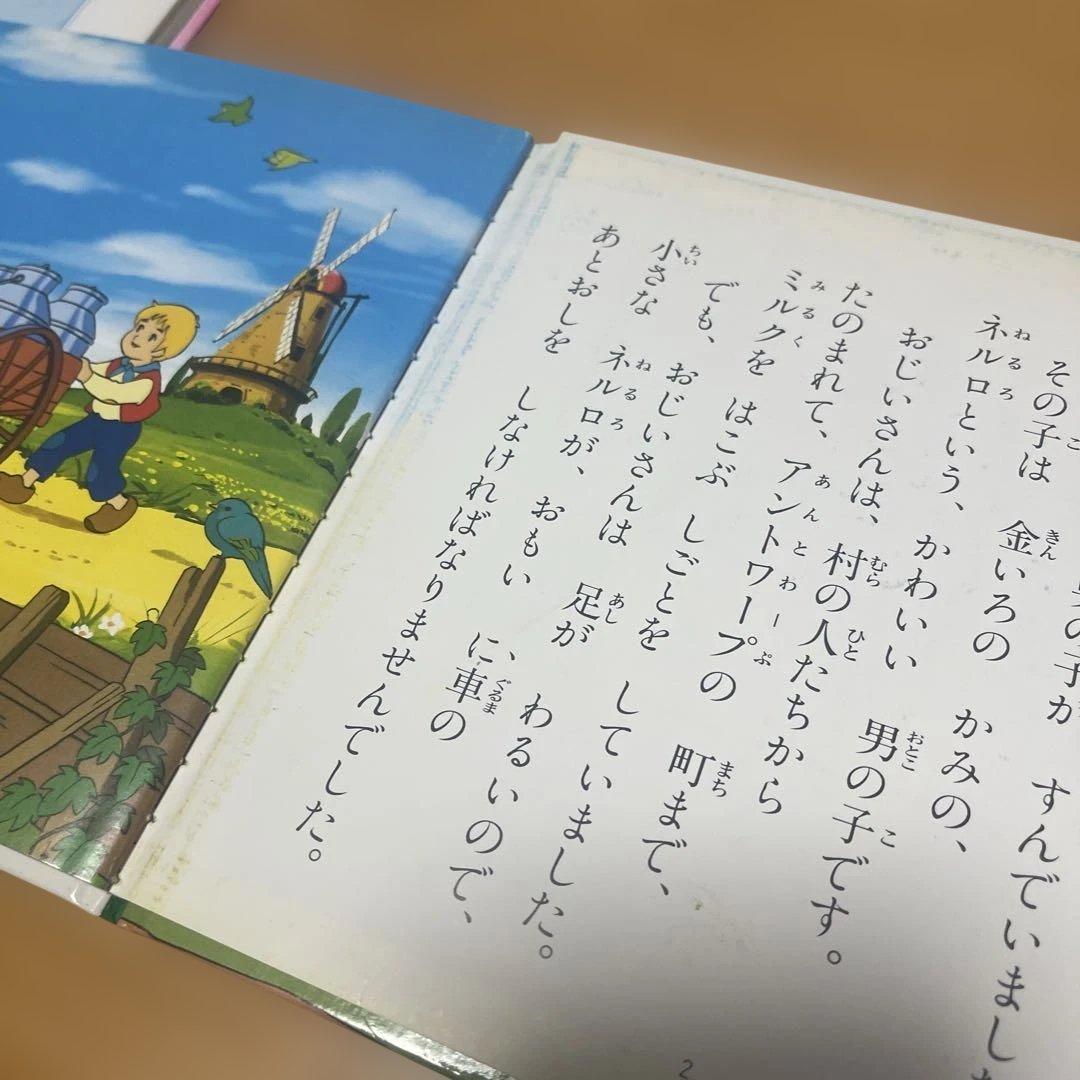 の子が すんでいまし
その子は 金いろの かみの、
ネルロという、かわいい 男の子です。
おじいさんは、村の人たちから
たのまれて、アントワープの 町まで、
ミルクを はこぶ しごとを していました。
でも、おじいさんは 足が わるいので、
小さな ネルロが、おもい に車の
あとおしを しなければなりませんでした。
2